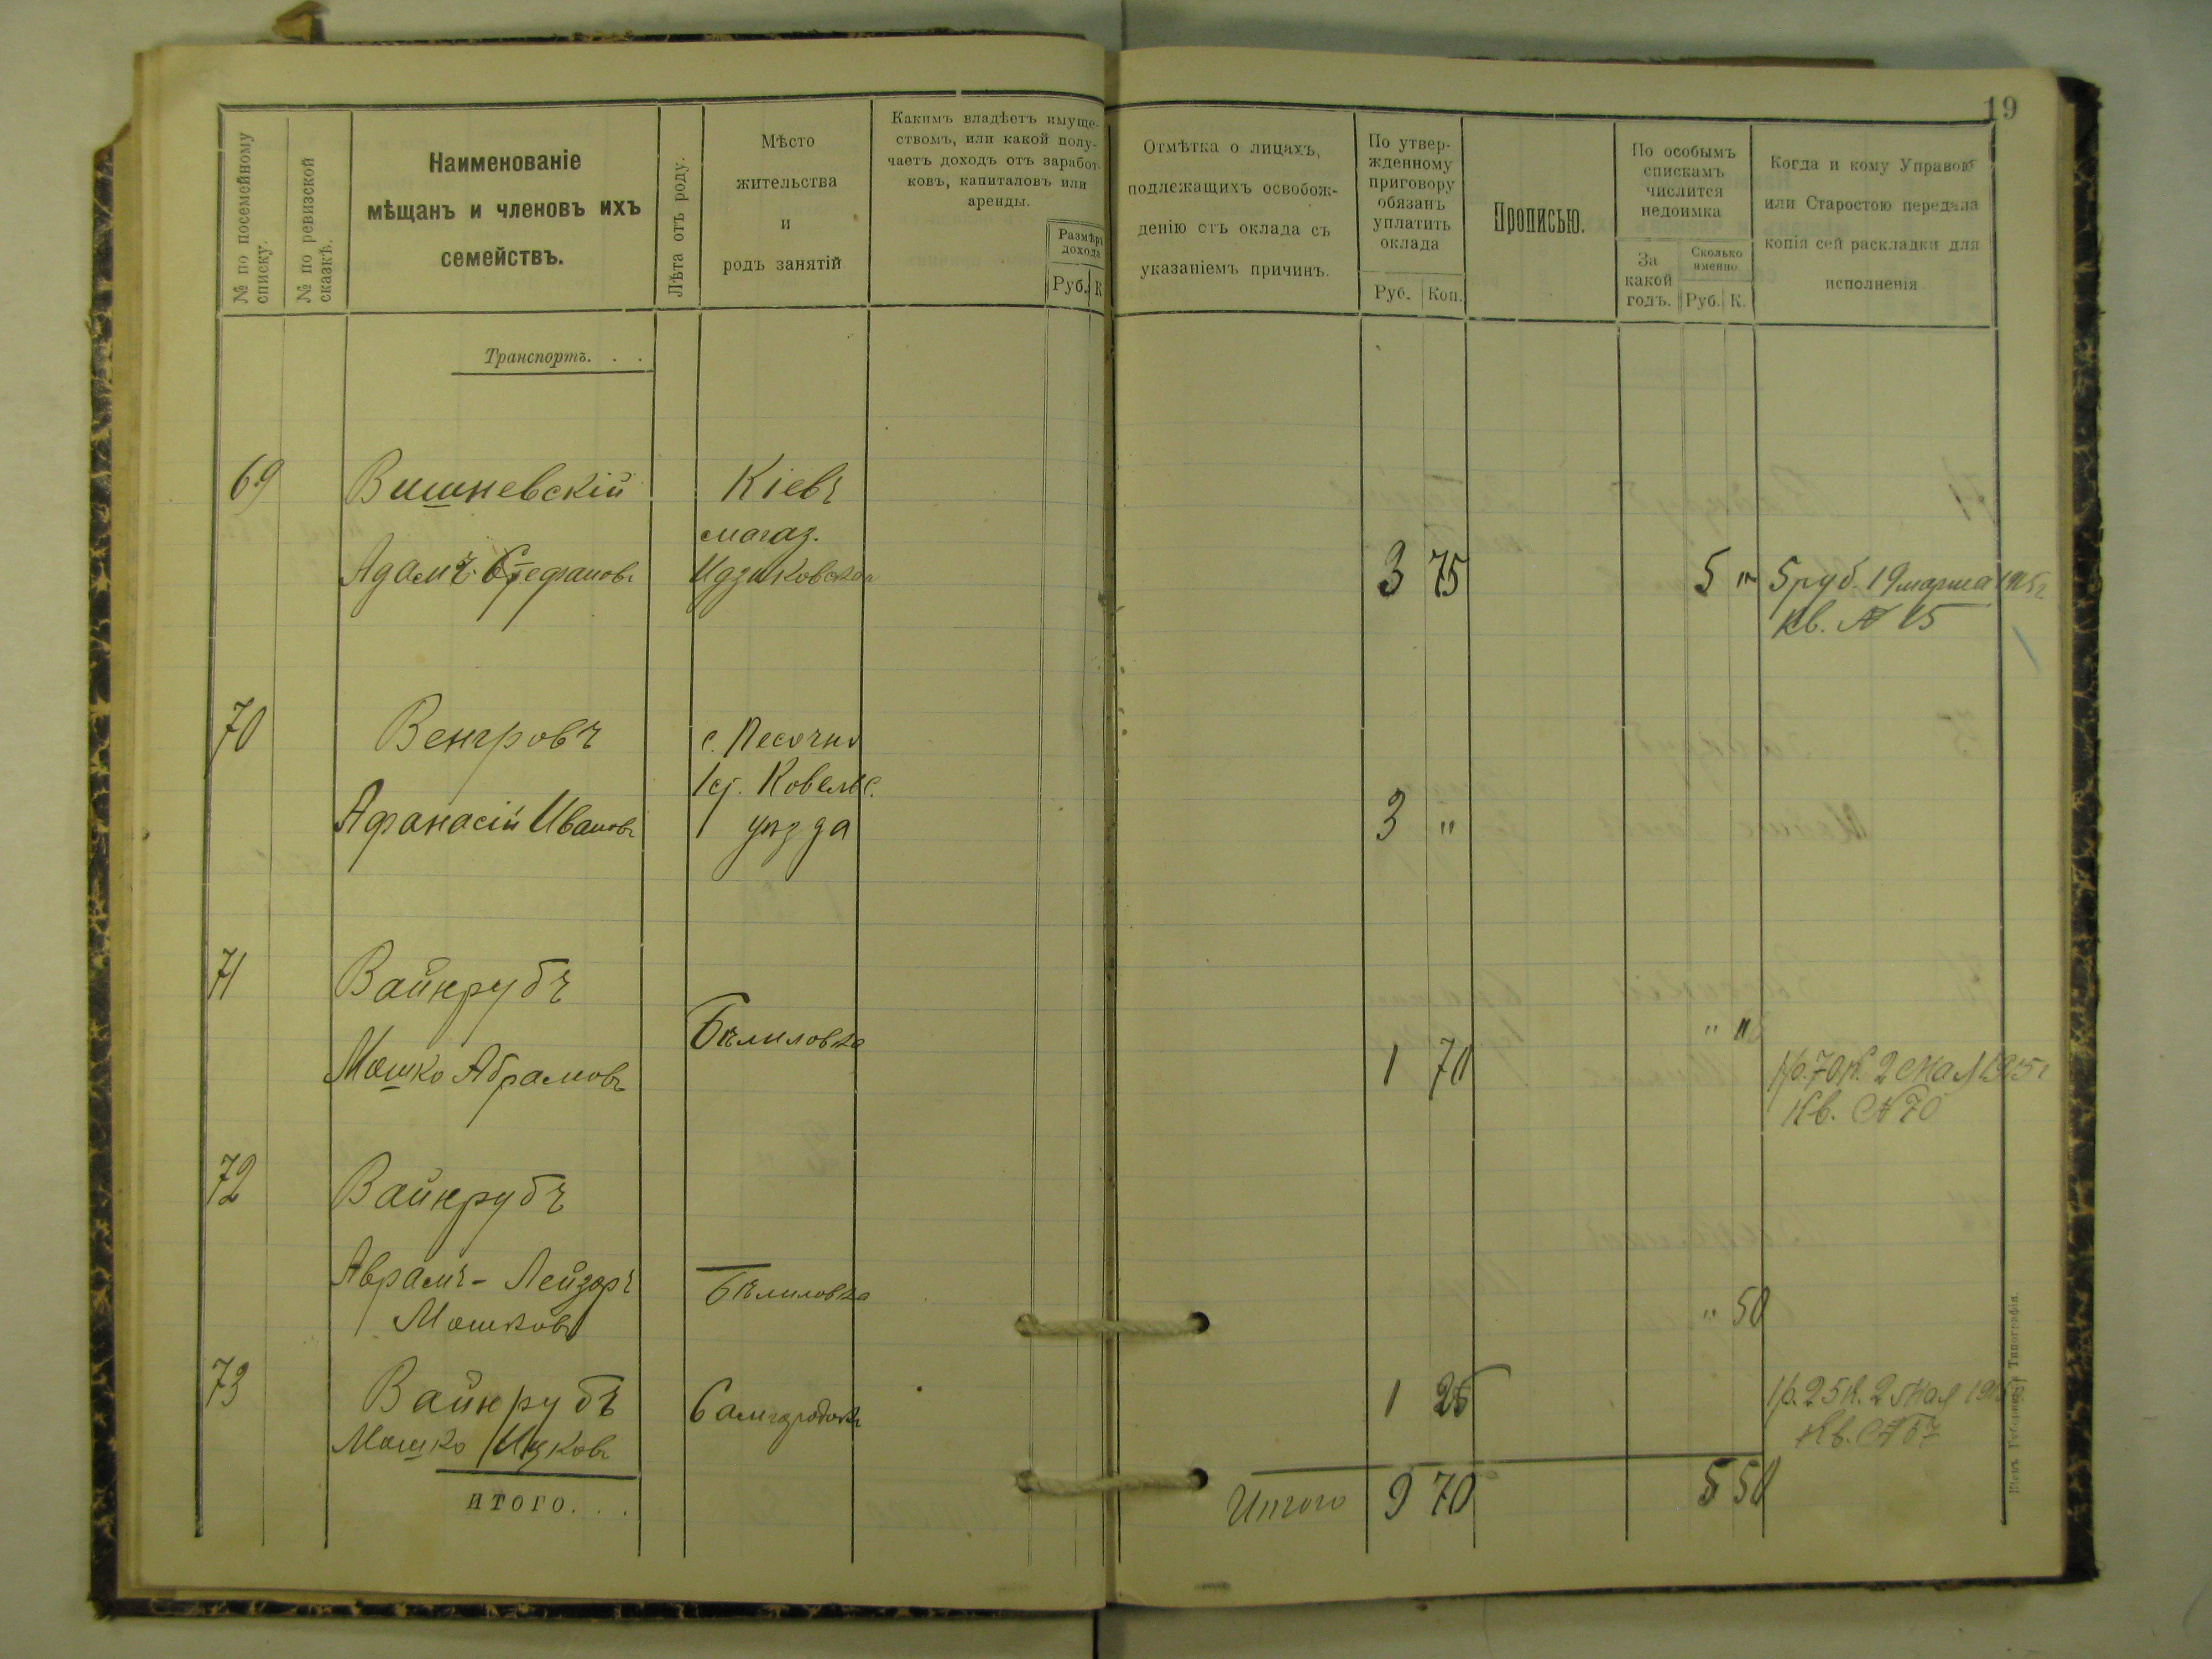 19
№ по посемейному
списку.
№ по ревизской
сказкѣ.
Наименованіе
мѣщанъ и членовъ ихъ
семействъ.
Лѣта отъ роду.
Мѣсто
жительства
и
родъ занятій
Какимъ владѣетъ имуще-
ствомъ, или какой полу-
чаетъ доходъ отъ заработ-
ковъ, капиталовъ или
аренды.
Размѣръ
дохода
Руб. К
Отмѣтка о лицахъ,
подлежащихъ освобож-
денію отъ оклада съ
указаніемъ причинъ.
По утвер-
жденному
приговору
обязанъ
уплатить
оклада
Руб. Коп.
Прописью.
По особымъ
спискамъ
числится
недоимка
За
какой
годъ.
Сколько
именно
Руб. К.
Когда и кому Управою
или Старостою передана
копія сей раскладки для
исполненія
Транспортъ. . .
69 Вишневскій Кіевъ
магаз.
Адамъ Стефановъ Идзиковская 3 75 5 " 5 руб. 19 марта 1915 г
Кв. № 15
70 Венгровъ с. Песочно
Ковельс.
Афанасій Ивановъ уѣзда 3 "
71 Вайнрубъ
Мошко Абрамовъ Бѣлиловка 1 70 " " 1 р. 70 к. 2 мая 1915 г
Кв. № 70
72 Вайнрубъ
Аврамъ - Лейзоръ Бѣлиловка " 50
Мошковъ
73 Вайнрубъ Самгородокъ 1 25 1 р. 25 к. 2 мая 191
Мошко Ицковъ Кв. № 67
итого. . . Итого 9 70 5 50
Типографія.